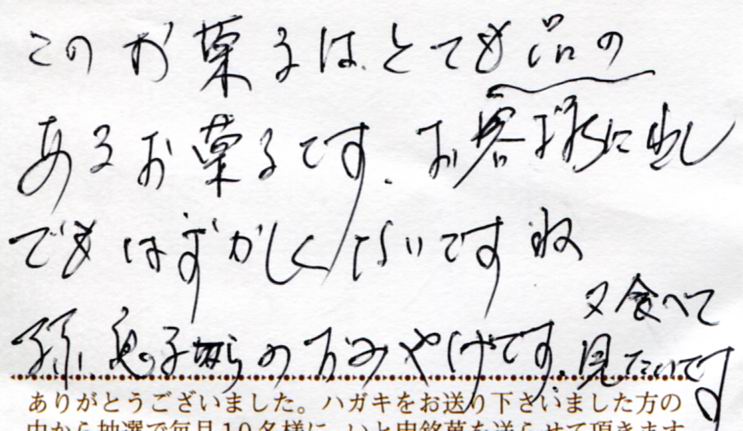 このお菓子は、とても品の
あるお菓子です。お客様に出し
てもはずかしくないですね
孫、息子からのおみやげです。又食べて
見たいです
ありがとうございました。ハガキをお送り下さいました方の
中から抽選で毎月10名様に、いと忠銘菓を送らせて頂きます